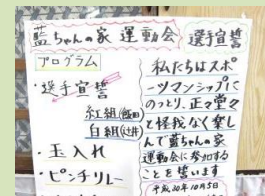 藍ちゃんの家 運動会
プログラム
・選手宣誓
紅組(飯田)
白組(辻井)
・玉入れ
・ピンチリレー
選手宣誓
私たちはスポ
ーツマンシップに
のっとり、正々堂々
と怪我なく楽し
んで藍ちゃんの家
運動会に参加する
ことを誓います
平成20年10月5日